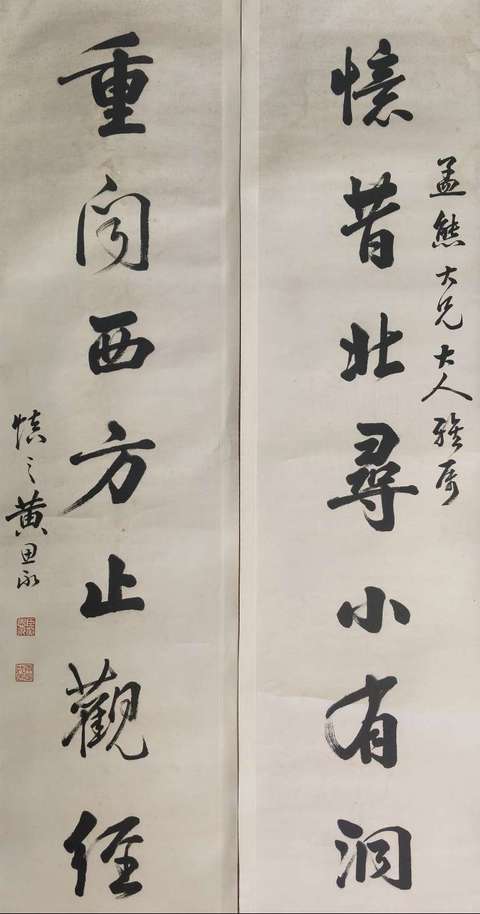 孟熊大兄大人雅属
憶昔北尋小有洞
重闻西方止觀經
慎之黄思永